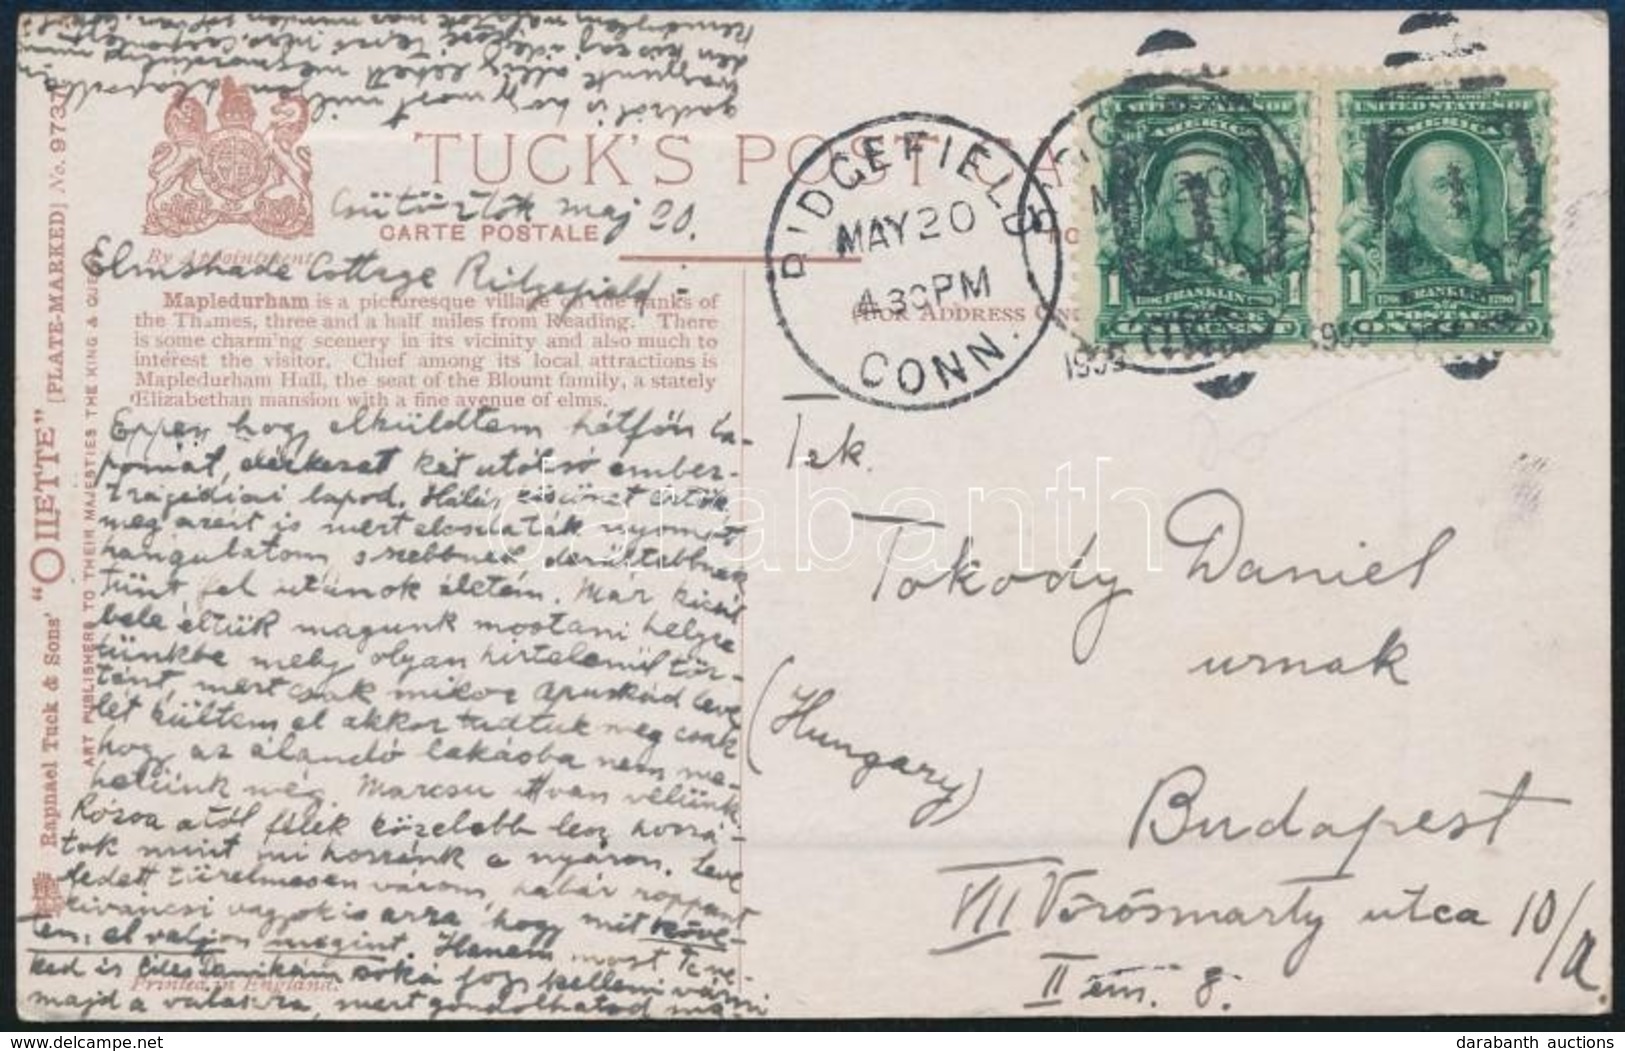 TUCK'S POST CA
Csütörtök maj 20.
CARTE POSTALE
By Appointment
Elmshade Cottage Ridgefield -
Mapledurham is a picturesque village on the banks of
the Thames, three and a half miles from Reading. There
is some charming scenery in its vicinity and also much to
interest the visitor. Chief among its local attractions is
Mapledurham Hall, the seat of the Blount family, a stately
Elizabethan mansion with a fine avenue of elms.
Éppen hogy elküldtem hétfőn la-
pomat, érkezett két utolsó ember-
tragédiai lapod. Hálás
meg azért is mert elosztották nyomott
hangulatom s szebbnek derültebbnek
tünt fel utánok életem. Már kicsit
bele éltük magunk mostani helyze
tünkbe mely olyan hirtelenül tör-
tént, mert csak mikor apuskád leve
let küldtem el akkor tudtuk meg csak
hogy az álandó lakásba nem me-
hetünk még. Marcsu itt van velünk
Rózsa a tól félék közelebb lesz hozzá-
tok mint mi hozzánk a nyáron. Leve
ledett türelmesen várom, habár roppant
kiváncsi vagyok is arra, hogy mit köve-
tem el valjon megint. Hanem most Tene-
ked is Édes Danikám soká fog kelleni várni
majd a válaszra, mert gondolhatod
Printed in England.
[PLATE-MARKED] No. 9737
Raphael Tuck & Sons' "OILETTE"
ART PUBLISHERS TO THEIR MAJESTIES THE KING & QUEEN
RIDGEFIELD
MAY 20
4 30 PM
CONN.
1909
1909
UNITED STATES OF
AMERICA
1 FRANKLIN 1
UNITED STATES OF
AMERICA
1 1706 FRANKLIN 1790 1
POSTAGE
ONE CENT
(FOR ADDRESS ON
Tek.
Tokody Daniel
urnak
(Hungary)
Budapest
VII Vörösmarty utca 10/a.
II em. 8.
darabanth
darabanth auctions